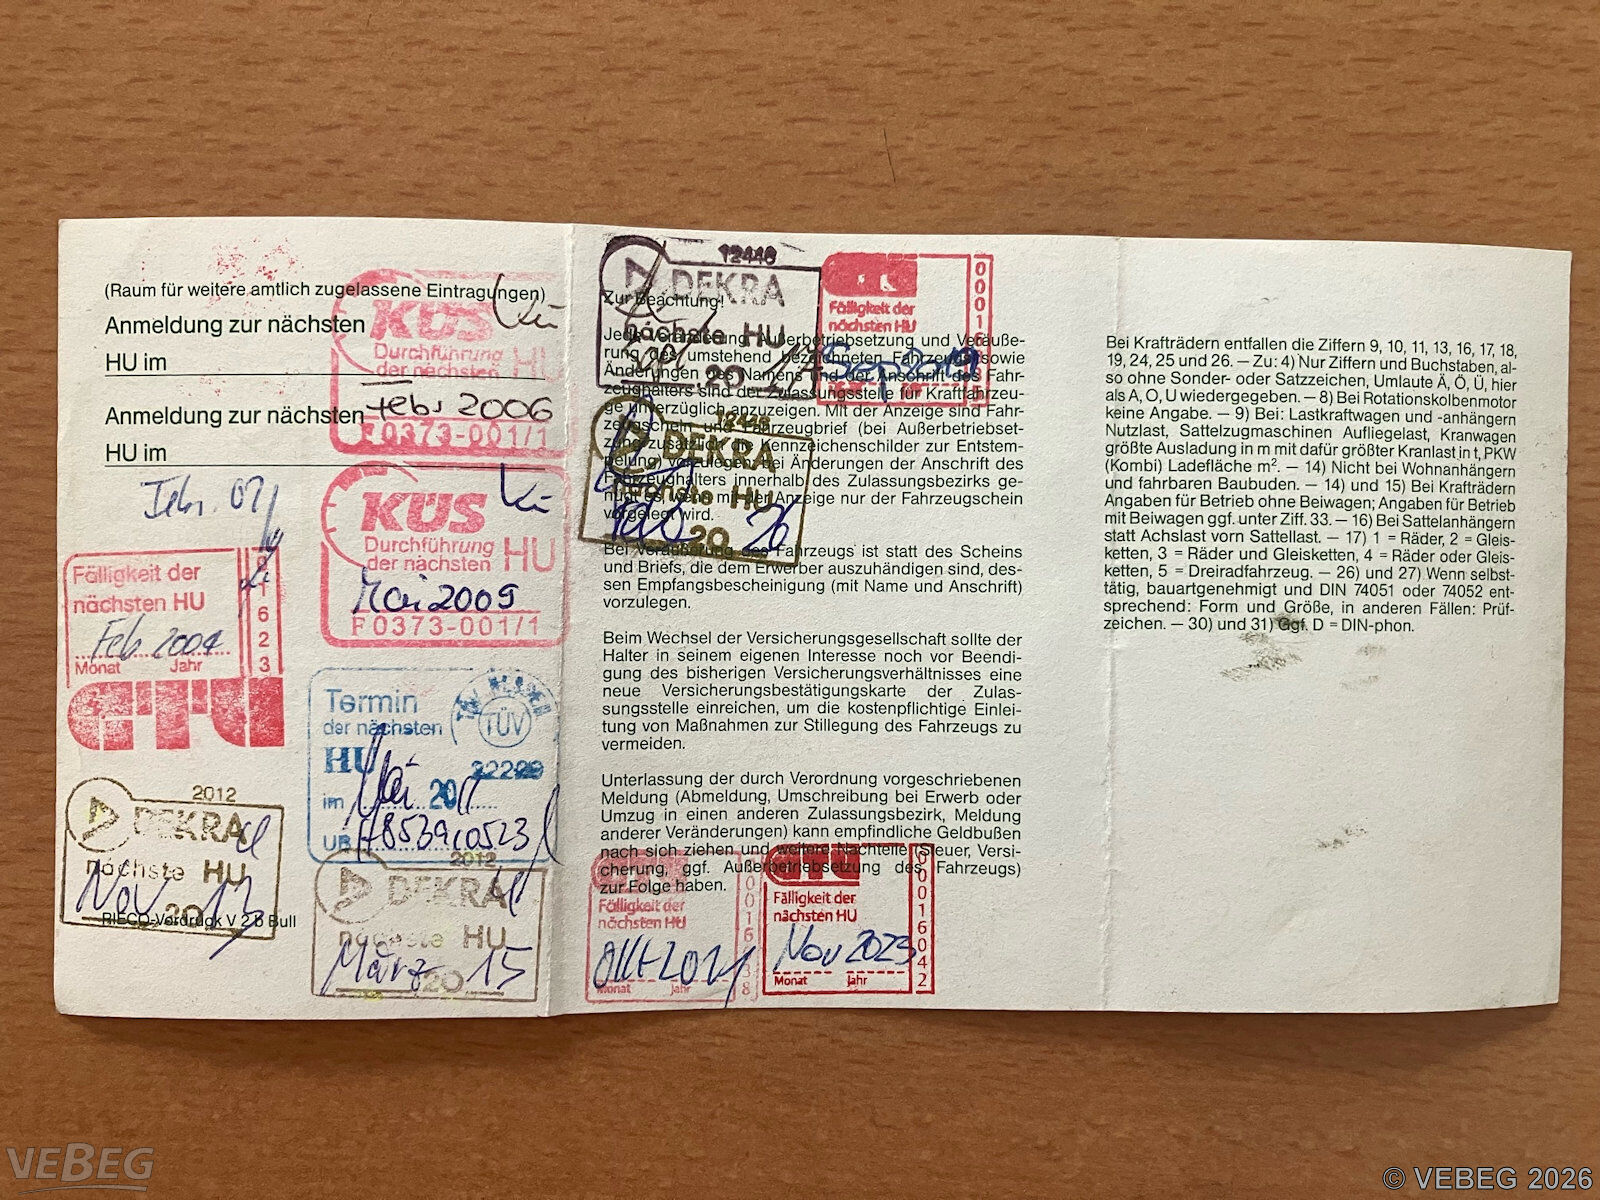 (Raum für weitere amtlich zugelassene Eintragungen)
Anmeldung zur nächsten
HU im
Anmeldung zur nächsten
HU im
KÜS
Durchführung HU
der nächsten
Febr 2006
F0373-001/1
KÜS
Durchführung HU
der nächsten
Mai 2009
F0373-001/1
Fälligkeit der
nächsten HU
Monat Jahr
GTÜ
Termin
der nächsten
HU
TÜV
22209
im Mai 2011
2012
DEKRA
nächste HU
Nov 2013
RIECO-Vordruck V 2 b Bull
2012
DEKRA
nächste HU
März 2015
12446
DEKRA
nächste HU
20 17
Fälligkeit der
nächsten HU
Sep 2019
12446
DEKRA
nächste HU
20 26
Zur Beachtung!
Jede Veränderung, Außerbetriebsetzung und Veräuße-
rung des umstehend bezeichneten Fahrzeugs sowie
Änderungen des Namens und der Anschrift des Fahr-
zeughalters sind der Zulassungsstelle für Kraftfahrzeu-
ge unverzüglich anzuzeigen. Mit der Anzeige sind Fahr-
zeugschein und Fahrzeugbrief (bei Außerbetriebset-
zung zusätzlich die Kennzeichenschilder zur Entstem-
pelung) vorzulegen; bei Änderungen der Anschrift des
Fahrzeughalters innerhalb des Zulassungsbezirks ge-
nügt es, wenn mit der Anzeige nur der Fahrzeugschein
vorgelegt wird.
Bei Veräußerung des Fahrzeugs ist statt des Scheins
und Briefs, die dem Erwerber auszuhändigen sind, des-
sen Empfangsbescheinigung (mit Name und Anschrift)
vorzulegen.
Beim Wechsel der Versicherungsgesellschaft sollte der
Halter in seinem eigenen Interesse noch vor Beendi-
gung des bisherigen Versicherungsverhältnisses eine
neue Versicherungsbestätigungskarte der Zulas-
sungsstelle einreichen, um die kostenpflichtige Einlei-
tung von Maßnahmen zur Stillegung des Fahrzeugs zu
vermeiden.
Unterlassung der durch Verordnung vorgeschriebenen
Meldung (Abmeldung, Umschreibung bei Erwerb oder
Umzug in einen anderen Zulassungsbezirk, Meldung
anderer Veränderungen) kann empfindliche Geldbußen
nach sich ziehen und weitere Nachteile (Steuer, Versi-
cherung, ggf. Außerbetriebsetzung des Fahrzeugs)
zur Folge haben.
Fälligkeit der
nächsten HU
Okt 2021
Monat Jahr
GTÜ
Fälligkeit der
nächsten HU
Nov 2023
Monat Jahr
00016042
Bei Krafträdern entfallen die Ziffern 9, 10, 11, 13, 16, 17, 18,
19, 24, 25 und 26. — Zu: 4) Nur Ziffern und Buchstaben, al-
so ohne Sonder- oder Satzzeichen, Umlaute Ä, Ö, Ü, hier
als A, O, U wiedergegeben. — 8) Bei Rotationskolbenmotor
keine Angabe. — 9) Bei: Lastkraftwagen und -anhängern
Nutzlast, Sattelzugmaschinen Aufliegelast, Kranwagen
größte Ausladung in m mit dafür größter Kranlast in t, PKW
(Kombi) Ladefläche m². — 14) Nicht bei Wohnanhängern
und fahrbaren Baubuden. — 14) und 15) Bei Krafträdern
Angaben für Betrieb ohne Beiwagen; Angaben für Betrieb
mit Beiwagen ggf. unter Ziff. 33. — 16) Bei Sattelanhängern
statt Achslast vorn Sattellast. — 17) 1 = Räder, 2 = Gleis-
ketten, 3 = Räder und Gleisketten, 4 = Räder oder Gleis-
ketten, 5 = Dreiradfahrzeug. — 26) und 27) Wenn selbst-
tätig, bauartgenehmigt und DIN 74051 oder 74052 ent-
sprechend: Form und Größe, in anderen Fällen: Prüf-
zeichen. — 30) und 31) Ggf. D = DIN-phon.
VEBEG
© VEBEG 2026